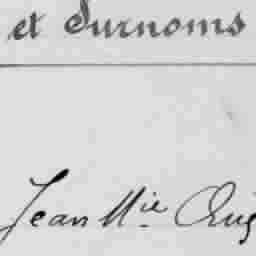 et Surnoms
Jean M.ie Aug